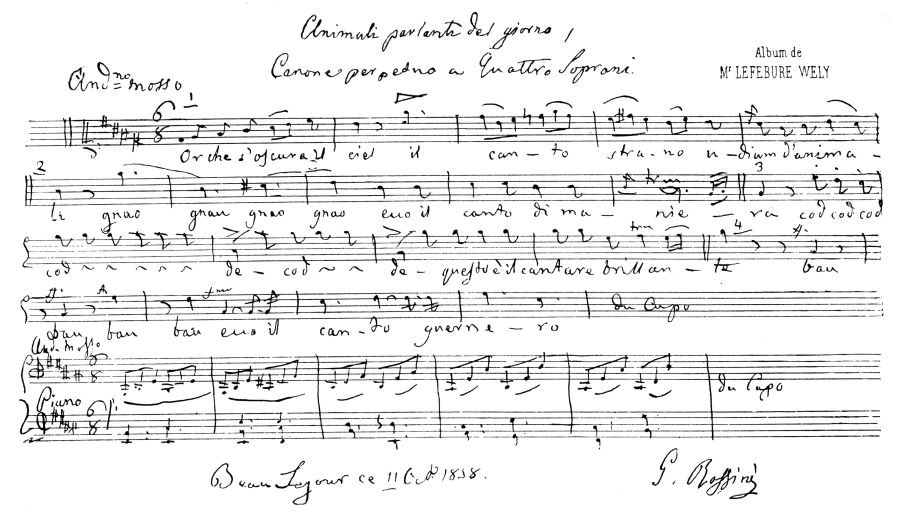 Animali parlanti del giorno,
Canone perpetuo a Quattro Soprani.
Album de
Mr LEFEBURE WELY
And.no mosso
6/8
1
Or che s'oscura il ciel il can-to stra-no u-diam d'anima-
2
li gnao gnau gnao gnao ecco il canto di ma-nie-ra cod cod cod
3
cod ~ ~ ~ ~ ~ ~ dè-cod ~ ~ dè-questo è il cantare brillan-te bau
4
bau bau bau ecco il can-to guerrie-ro
da Capo
And. mosso
6/8
Piano
6/8
da Capo
Beau Séjour ce 11 1858.
G. Rossini